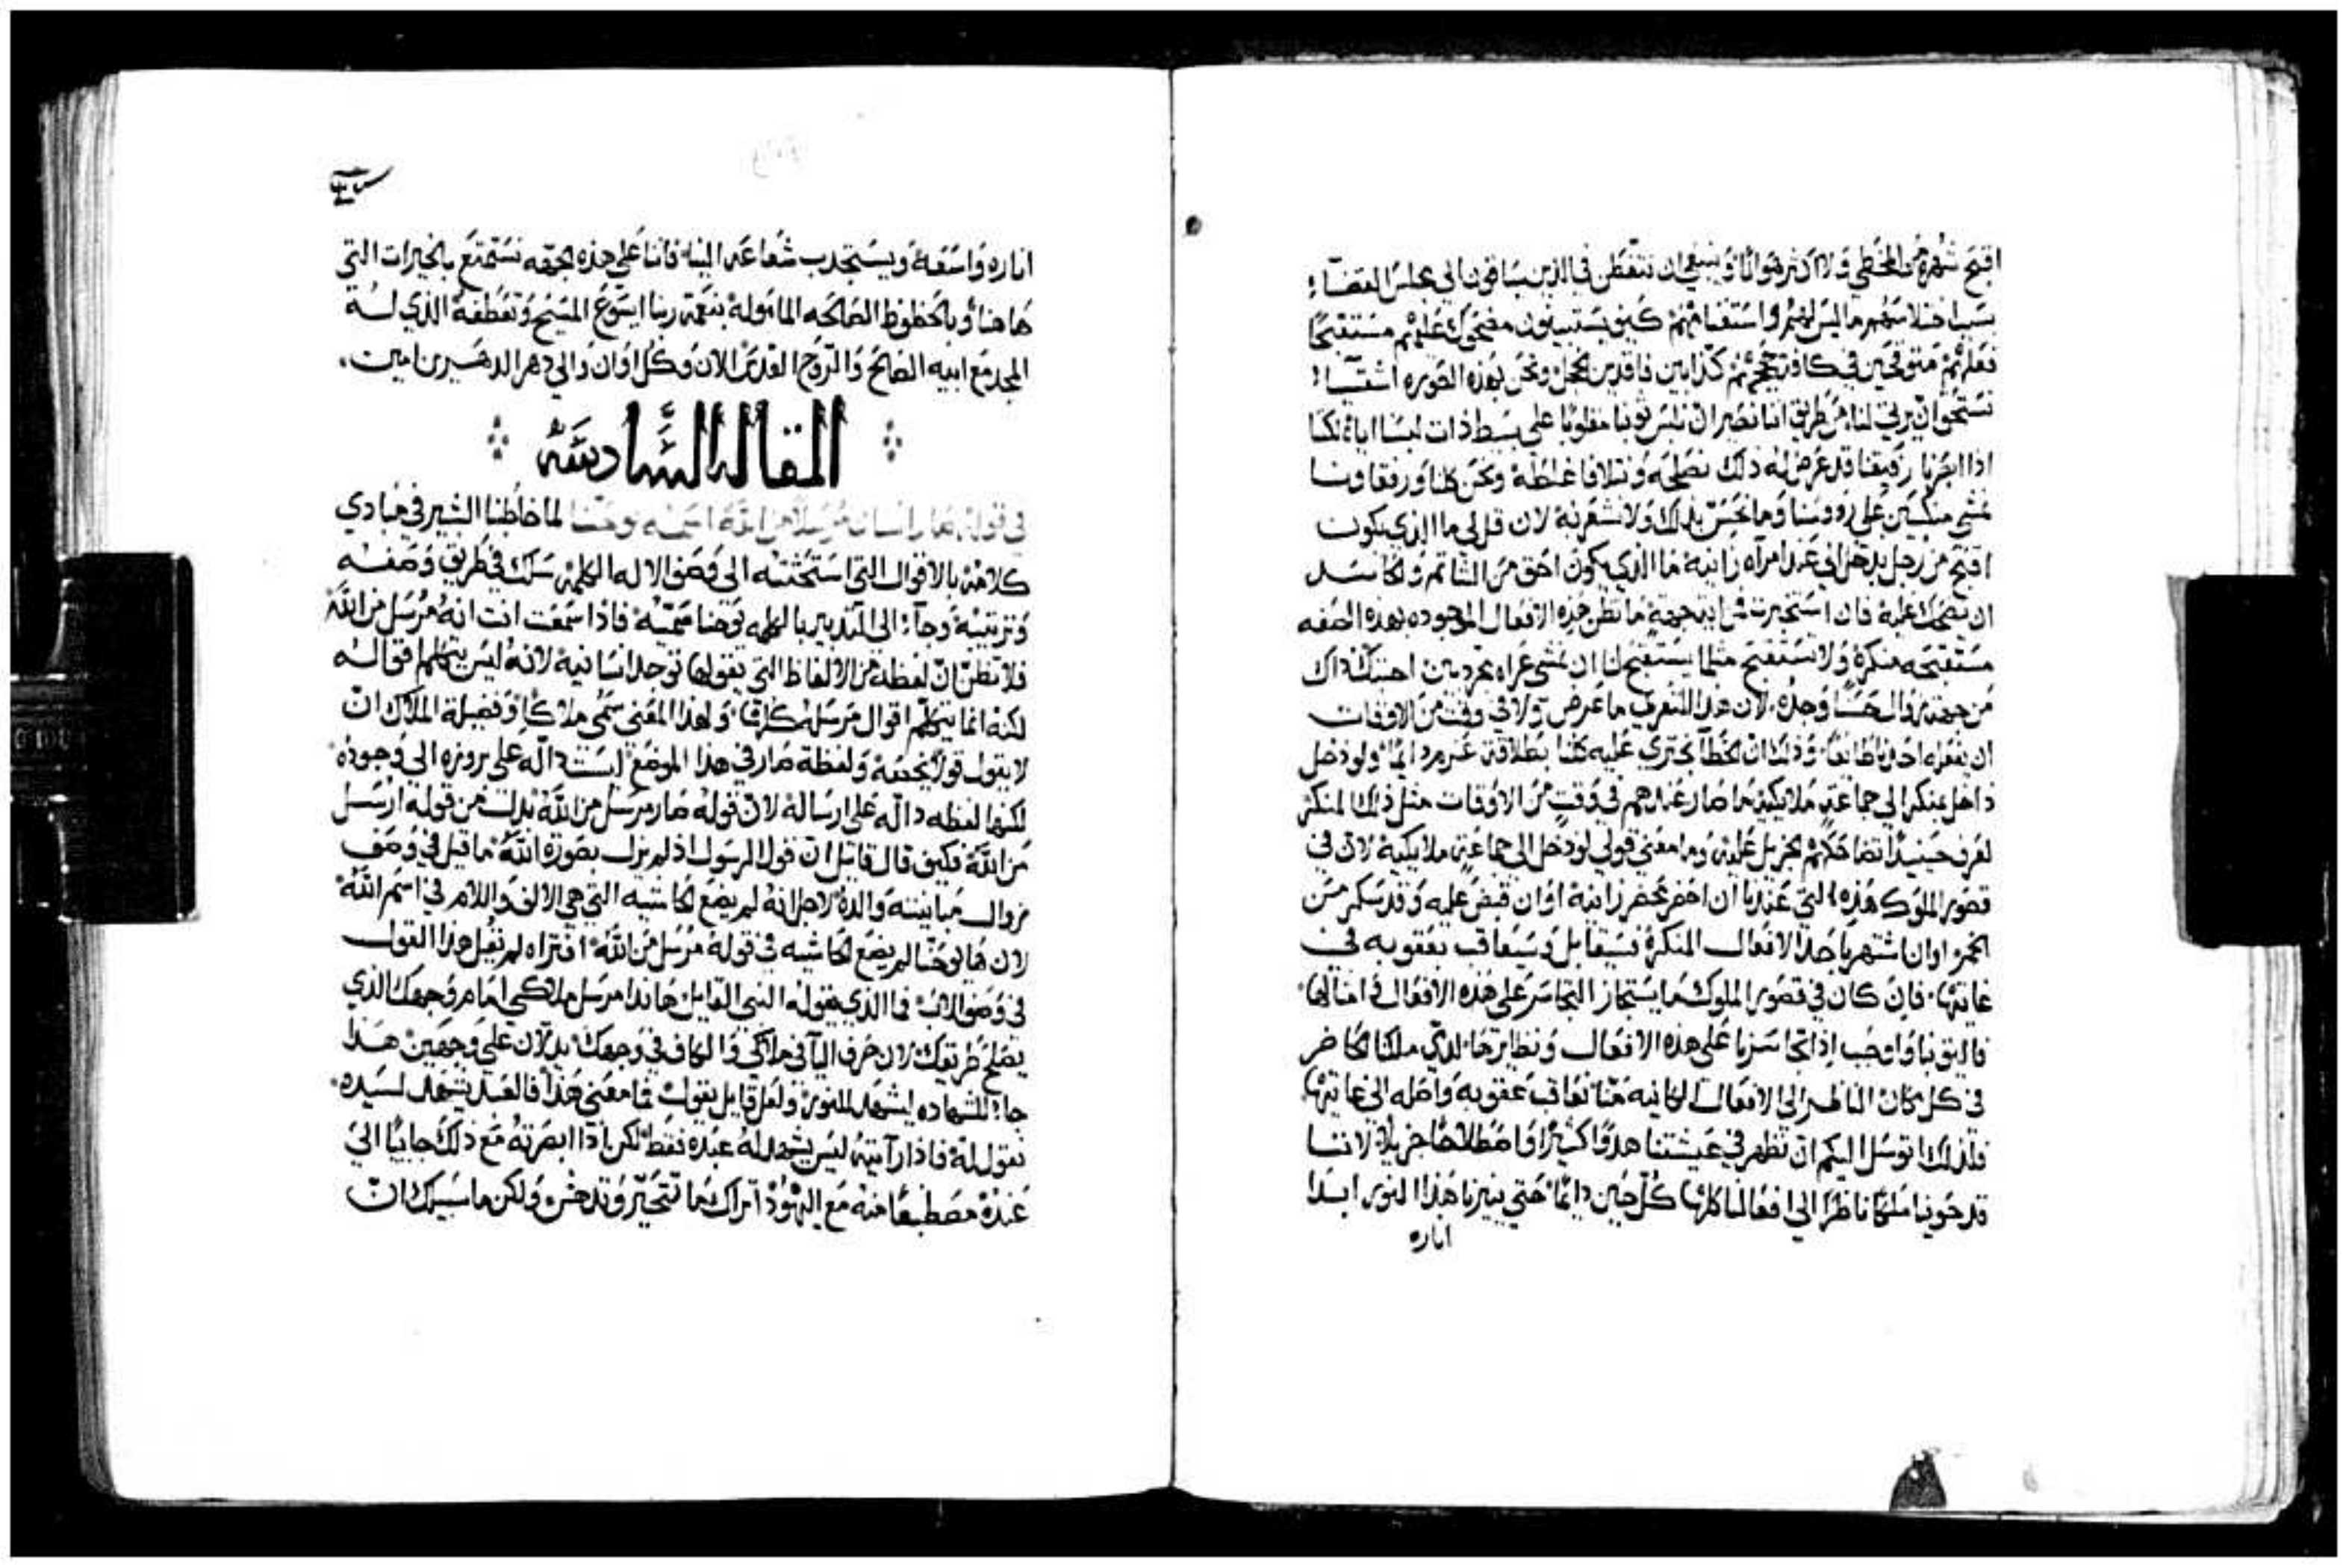 اقبح شهره من المخطي ولا اكثر هوانا وينبغي ان نتفطن في الذين يساقون الي مجلس القضا
بسبب اختلاسهم ما ليس لهم واستغنامهم كيف يستبينون مضحوك عليهم مستقبحا
فعلهم متوقحين في كافة حججهم كذابين فاقدين الخجل ونحن بهذه الصوره اشقيا
نستحق ان يرثي لنا من طريق اننا نصير ان نلبس ثوبنا مقلوبا علي بسيط ذات لبسنا اياه لكنا
اذا ابصرنا رفيقنا قد عرض له ذلك نصلحه ونتلافا غلطه ونحن كلنا ورفقاونا
نمشي منكسين علي رووسنا وما نحس بذلك ولا نشعر به لان قل لي ما الذي يكون
اقبح من رجل يدخل الي عند امراه زانيه ما الذي يكون احق من الشاتم والحاسد
ان يضحك عليه فان استخبرت من اية جهة ما تظن هذه الافعال الموجوده بهذه الصفه
مستقبحه منكرة ولا تستقبح مثلما يستقبح لنا ان نمشي عراه مجردين احسبك ذاك
من جهة زوال حسنا وحده لان هذا التعري ما عرض ولا في وقت من الاوقات
ان يفعله احدنا طايعا وذلك ان الخطا يجتري عليه كلنا بطلاقة غير مره دايما ولو دخل
داخل بمنكر الي جماعة ملايكية ما صار عندهم في وقت من الاوقات مثل ذلك المنكر
لعرف حينيذ تضاحكهم الجزيل عليه وما معني قولي لو دخل الي جماعة ملايكية لان في
قصور الملوك هذه التي عندنا ان احضر محضر زانية او ان قبض عليه وقد سكر من
الخمر او ان اشتهر باحد الافعال المنكرة فسيقابل وسيعاقب بعقوبه في
غايتها فان كان في قصور الملوك ما يستجاز التجاسر علي هذه الافعال وامثالها
فاليق بنا واوجب اذا تجاسرنا علي هذه الافعال ونظايرها لدي ملكنا الحاضر
في كل مكان الناظر الي الافعال الكاينه منا نعاقب عقوبه واصله الي غايتها
فلذلك اتوسل اليكم ان نظهر في عيشتنا هدوا كثيرا واصطلاحا جزيلا لاننا
قد حوينا ملكا ناظرا الي افعالنا كلها كل حين دايما حتي ينيرنا هذا النور ابدا
اناره
اناره واسعة ويستجذب شعاعه الينا فاننا علي هذه الجهه نستمتع بالخيرات التي
هاهنا وبالحظوظ الصالحه المامولة بنعمة ربنا ايسوع المسيح وتعطفه الذي له
المجد مع ابيه الصالح والروح القدس الان وكل اوان والي دهر الداهرين امين
المقاله السادسه
في قوله صار انسان مرسلا من الله اسمه يوحنا لما خاطبنا البشير في مبادي
كلامه بالاقوال التي استحثته الي وصف الاله الكلمه سلك في طريق وصفه
وترتيبه وجا الي النذير بالكلمه يوحنا سميه فاذا سمعت انت انه مرسل من الله
فلا تظن ان لفظة من الالفاظ التي يقولها توجد انسانية لانه ليس يتكلم اقواله
لكنه انما يتكلم اقوال مرسله كلها ولهذا المعني سمي ملاكا وفضيلة الملاك ان
لا يقول قولا يخصه ولفظة صار في هذا الموضع ليست دالة علي بروزه الي وجوده
لكنها لفظه داله علي ارسالة لان قوله صار مرسل من الله بدلا من قوله ارسل
من الله فكيف قال قايل ان قول الرسول اذ لم يزل بصورة الله ما قيل في وصف
زوال مباينته والده لاجل انه لم يضع الحاشيه التي هي الالف واللام في اسم الله
لان ها يوحنا لم يضع الحاشيه في قوله مرسل من الله افتراه لم نقبل هذا القول
في وصف الاب فما الذي يقوله النبي القايل هاندا مرسل ملاكي امام وجهك الذي
يصلح طريقك لان حرف اليا في ملاكي والكاف في وجهك يدلان علي وجهين هذا
جا للشهاده ليشهد للنور ولعل قايل يقول فما معني هذا فالعبد يشهد لسيده
نقول له فاذا رايته ليس يشهد له عبده فقط لكن اذا ابصرته مع ذلك جاييا الي
عبده مصطبغا منه مع اليهود اتراك بما تتحير وتدهش ولكن ما سبيلك ان